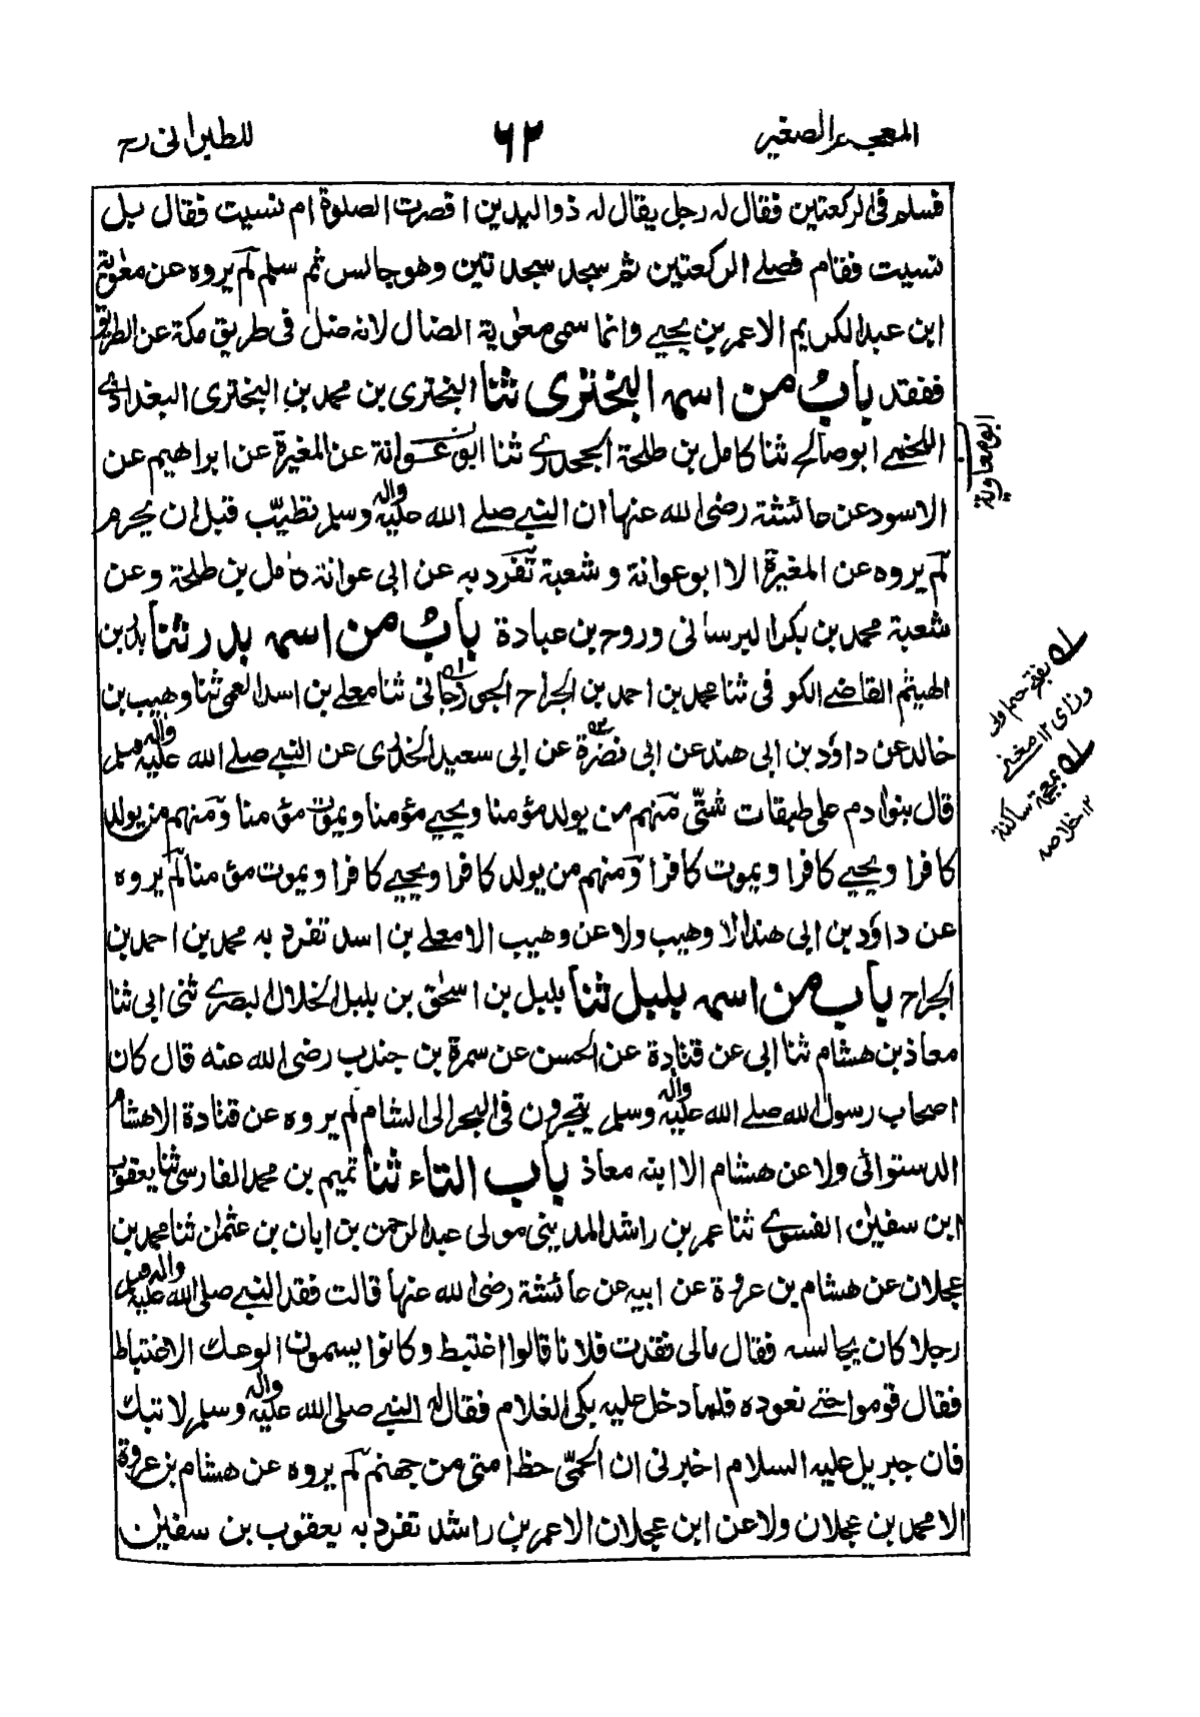 المعجم الصغير
٦٢
للطبرانى رح
فسلم فى الركعتين فقال له رجل يقال له ذو اليدين اقصرت الصلوة ام نسيت فقال بل
نسيت فقام فصلے الركعتين ثم سجد سجدتين وهو جالس ثم سلم لم يروه عن معٰوية
ابن عبد الكريم الا عمر بن يحيے وانما سمى معٰوية الضال لانه ضل فى طريق مكة عن الطريق
ففقد باب من اسمه البخترى ثنا البخترى بن محمد بن البخترى البغدادے
اللخمے ابو صالح ثنا كامل بن طلحة الجحدرے ثنا ابو عوانة عن المغيرة عن ابراهيم عن
الاسود عن عائشة رضى الله عنها ان النبے صلے الله عليه واله وسلم تطيّب قبل ان يحرم
لم يروه عن المغيرة الا ابو عوانة وشعبة تفرد به عن ابى عوانة كامل بن طلحة وعن
شعبة محمد بن بكر البرسانى وروح بن عبادة باب من اسمه بدر ثنا بدر بن
الهيثم القاضے الكوفى ثنا محمد بن احمد بن الجراح الجوزجانى ثنا معلے بن اسد العمى ثنا وهيب بن
خالد عن داؤد بن ابى هند عن ابى نضرة عن ابى سعيد الخدرى عن النبے صلے الله عليه واله وسلم
قال بنو ادم على طبقات شتّى منهم من يولد مؤمنا ويحيے مؤمنا ويموت مؤمنا ومنهم من يولد
كافرا ويحيے كافرا ويموت كافرا ومنهم من يولد كافرا ويحيے كافرا ويموت مؤمنا لم يروه
عن داؤد بن ابى هند الا وهيب ولا عن وهيب الا معلے بن اسد تفرد به محمد بن احمد بن
الجراح باب من اسمه بلبل ثنا بلبل بن اسحٰق بن بلبل الخلال البصرے ثنى ابى ثنا
معاذ بن هشام ثنا ابى عن قتادة عن الحسن عن سمرة بن جندب رضى الله عنه قال كان
اصحاب رسول الله صلے الله عليه واله وسلم يتجرون فى البحر الى الشام لم يروه عن قتادة الا هشام
الدستوائى ولا عن هشام الا ابنه معاذ باب التاء ثنا تميم بن محمد الفارسى ثنا يعقوب
ابن سفيٰن الفسوے ثنا عمر بن راشد المدينى مولى عبد الرحمن بن ابان بن عثمٰن ثنا محمد بن
عجلان عن هشام بن عروة عن ابيه عن عائشة رضى الله عنها قالت فقد النبے صلى الله عليه واله وسلم
رجلا كان يجالسه فقال مالى فقدت فلانا قالوا اختبط وكانوا يسمون الوعك الاختباط
فقال قوموا حتے نعوده فلما دخل عليه بكى الغلام فقال له النبے صلى الله عليه واله وسلم لا تبك
فان جبريل عليه السلام اخبرنى ان الحمّى حظ امتى من جهنم لم يروه عن هشام بن عروة
الا محمد بن عجلان ولا عن ابن عجلان الا عمر بن راشد تفرد به يعقوب بن سفيٰن
ابو معاوية
له بفتح جيم اولى
وزاى ١٢ مغنے
له بمعجمة ساكنة
١٢ خلاصه